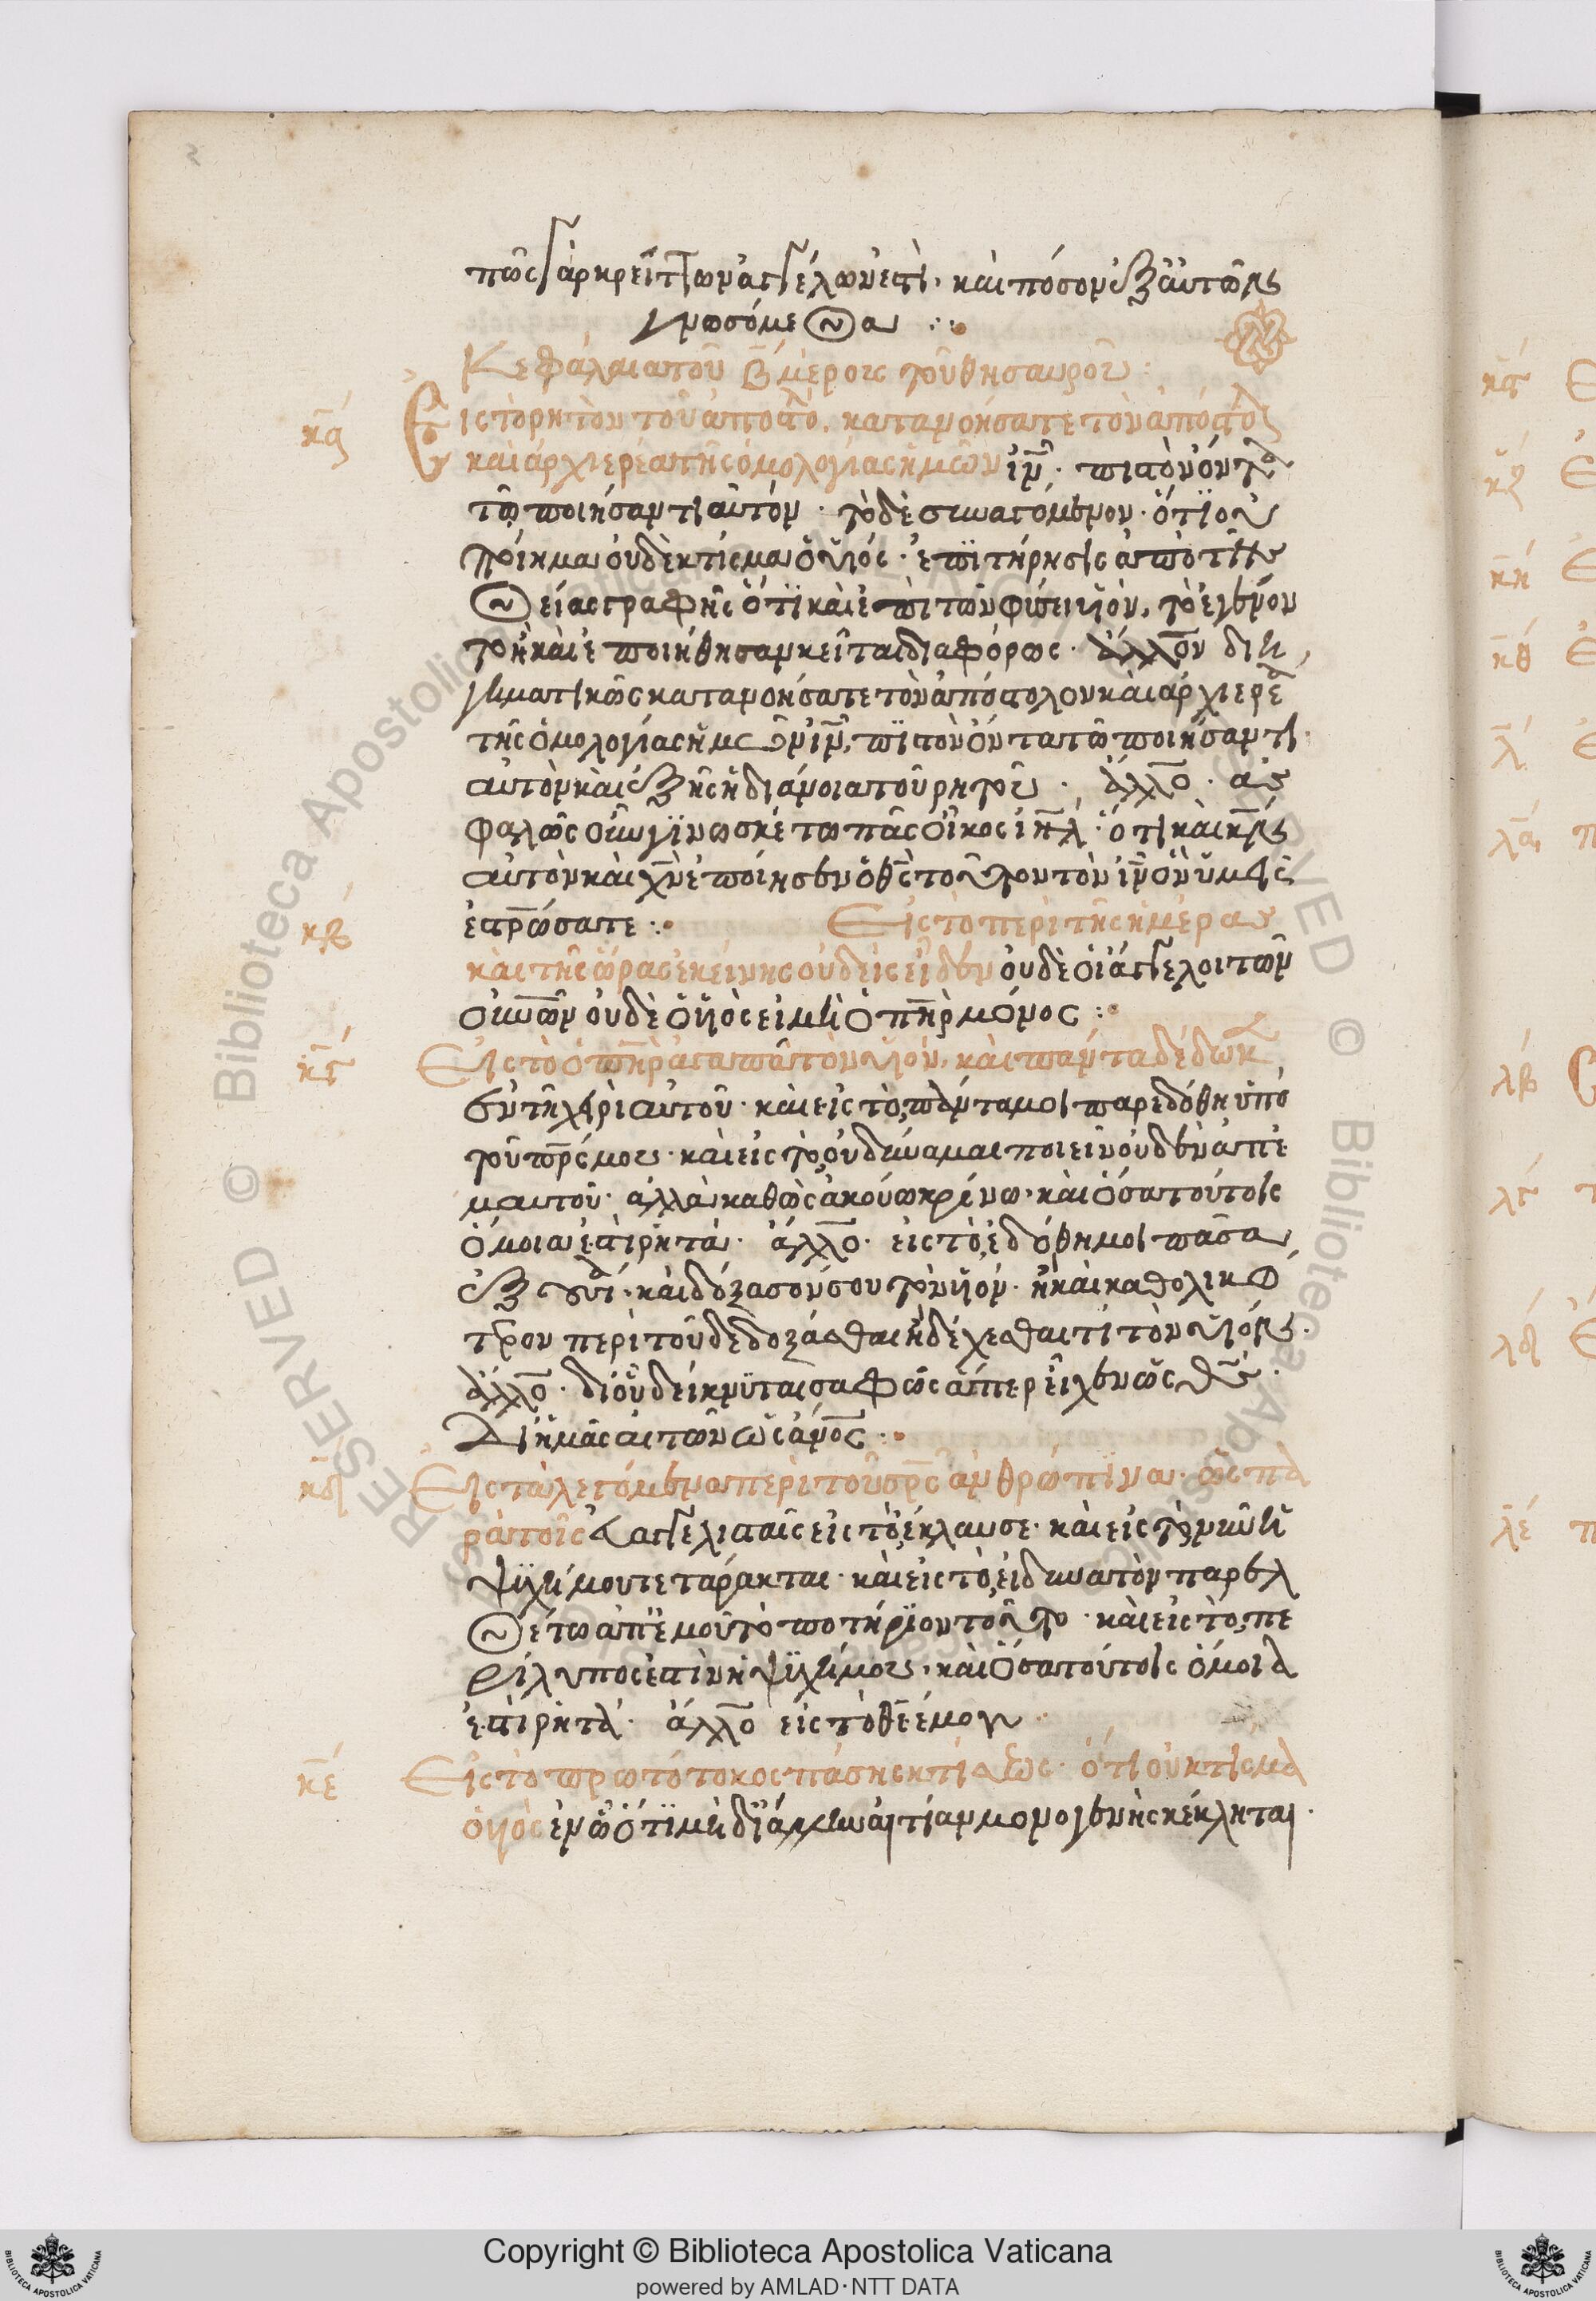 πῶς γὰρ κρείττων ἀγγέλων ἐστὶ, καὶ πόσον ἐξ αὐτῶν
γνωσόμεθα ⁘
Κεφάλαια τοῦ β̄ μέρους τοῦ θησαυροῦ:
κ̄α Εἰς τὸ ρητὸν τοῦ ἀποστό. κατανοήσατε τὸν ἀπόστολ
καὶ ἀρχιερέα τῆς ὁμολογίας ἡμῶν ἰν̄. πιστὸν ὄντα
τῶ ποιήσαντι αὐτόν. τὸ δὲ συναγόμενον. ὅτι οὐ
ποίημα οὐδὲ κτίσμα ὁ υἱός. ἐπιτήρησις ἀπὸ τῆς
θείας γραφῆς ὅτι καὶ ἐπὶ τῶν φύσει υἱῶν, τὸ ἐγένον
το ἢ καὶ ἐποιήθησαν κεῖται διαφόρως. ἄλλον διη
γηματικῶς κατανοήσατε τὸν ἀπόστολον καὶ ἀρχιερέ
τῆς ὁμολογίας ἡμῶν ἰν̄, πιστὸν ὄντα τῶ ποιήσαντι
αὐτὸν καὶ ἑξῆς ἡ διάνοια τοῦ ρητοῦ. ἄλλο. ἀσ
φαλῶς οὖν γινωσκέτω πᾶς οἶκος ἰη̄λ. ὅτι καὶ κν̄
αὐτὸν καὶ χν̄ ἐποίησεν ὁ θς̄ τοῦτον τὸν ἰν̄ ὃν ὑμεῖς
ἐστρώσατε ⁘
κ̄β Εἰς τὸ περὶ τῆς ἡμέρας
καὶ τῆς ὥρας ἐκείνης οὐδεὶς εἶδεν οὐδὲ οἱ ἄγγελοι τῶν
οὐνῶν οὐδὲ ὁ υἱὸς εἰ μὴ ὁ πη̄ρ μόνος ⁘
κ̄γ Εἰς τὸ ὁ πη̄ρ ἀγαπᾶ τὸν υἱόν, καὶ πάντα δέδωκ
ἐν τῆ χειρὶ αὐτοῦ. καὶ εἰς τὸ, πάντα μοι παρεδόθη ὑπὸ
τοῦ πρ̄ς μου. καὶ εἰς τὸ, οὐ δύναμαι ποιεῖν οὐδὲν ἀπ' ἐ
μαυτοῦ. ἀλλὰ καθὼς ἀκούω κρίνω. καὶ ὅσα τούτοις
ὅμοια ἐστὶ ρητά. ἄλλο. εἰς τὸ ἐδόθη μοι πᾶσα
ἐξουσί. καὶ δόξασόν σου τὸν υἱόν. ἢ καὶ καθολικώ
τερον περὶ τοῦ δεδοξάσθαι ἢ δέχεσθαι τί τὸν υἱόν.
ἄλλο. δι' οὗ δείκνυται σαφῶς ἅπερ εἶχεν ὡς θς̄.
δι' ἡμᾶς αἰτῶν ὡς ἄν̄ος ⁘
κ̄δ Εἰς τὰ λεγόμενα περὶ τοῦ σρ̄ς ἀνθρώπινα. ὡς πα
ρὰ τοῖς εὐαγγελισταῖς εἰς τὸ, ἔκλαυσε. καὶ εἰς τὸ, νῦν ἡ
ψυχή μου τετάρακται. καὶ εἰς τὸ, εἰ δυνατὸν παρελ
θέτω ἀπ' ἐμοῦ τὸ ποτήριον τοῦτο. καὶ εἰς τὸ, πε
ρίλυπός ἐστιν ἡ ψυχή μου. καὶ ὅσα τούτοις ὅμοια
ἐστὶ ρητά. ἄλλο εἰς τὸ θε̄ έ μου
κ̄ε Εἰς τὸ πρωτότοκος πάσης κτίσεως. ὅτι οὐ κτίσμα
ὁ υἱὸς ἐν ὧ ὅτι μὴ δι' ἄλλην αἰτίαν μονογενὴς κέκληται.
Copyright © Biblioteca Apostolica Vaticana
powered by AMLAD·NTT DATA